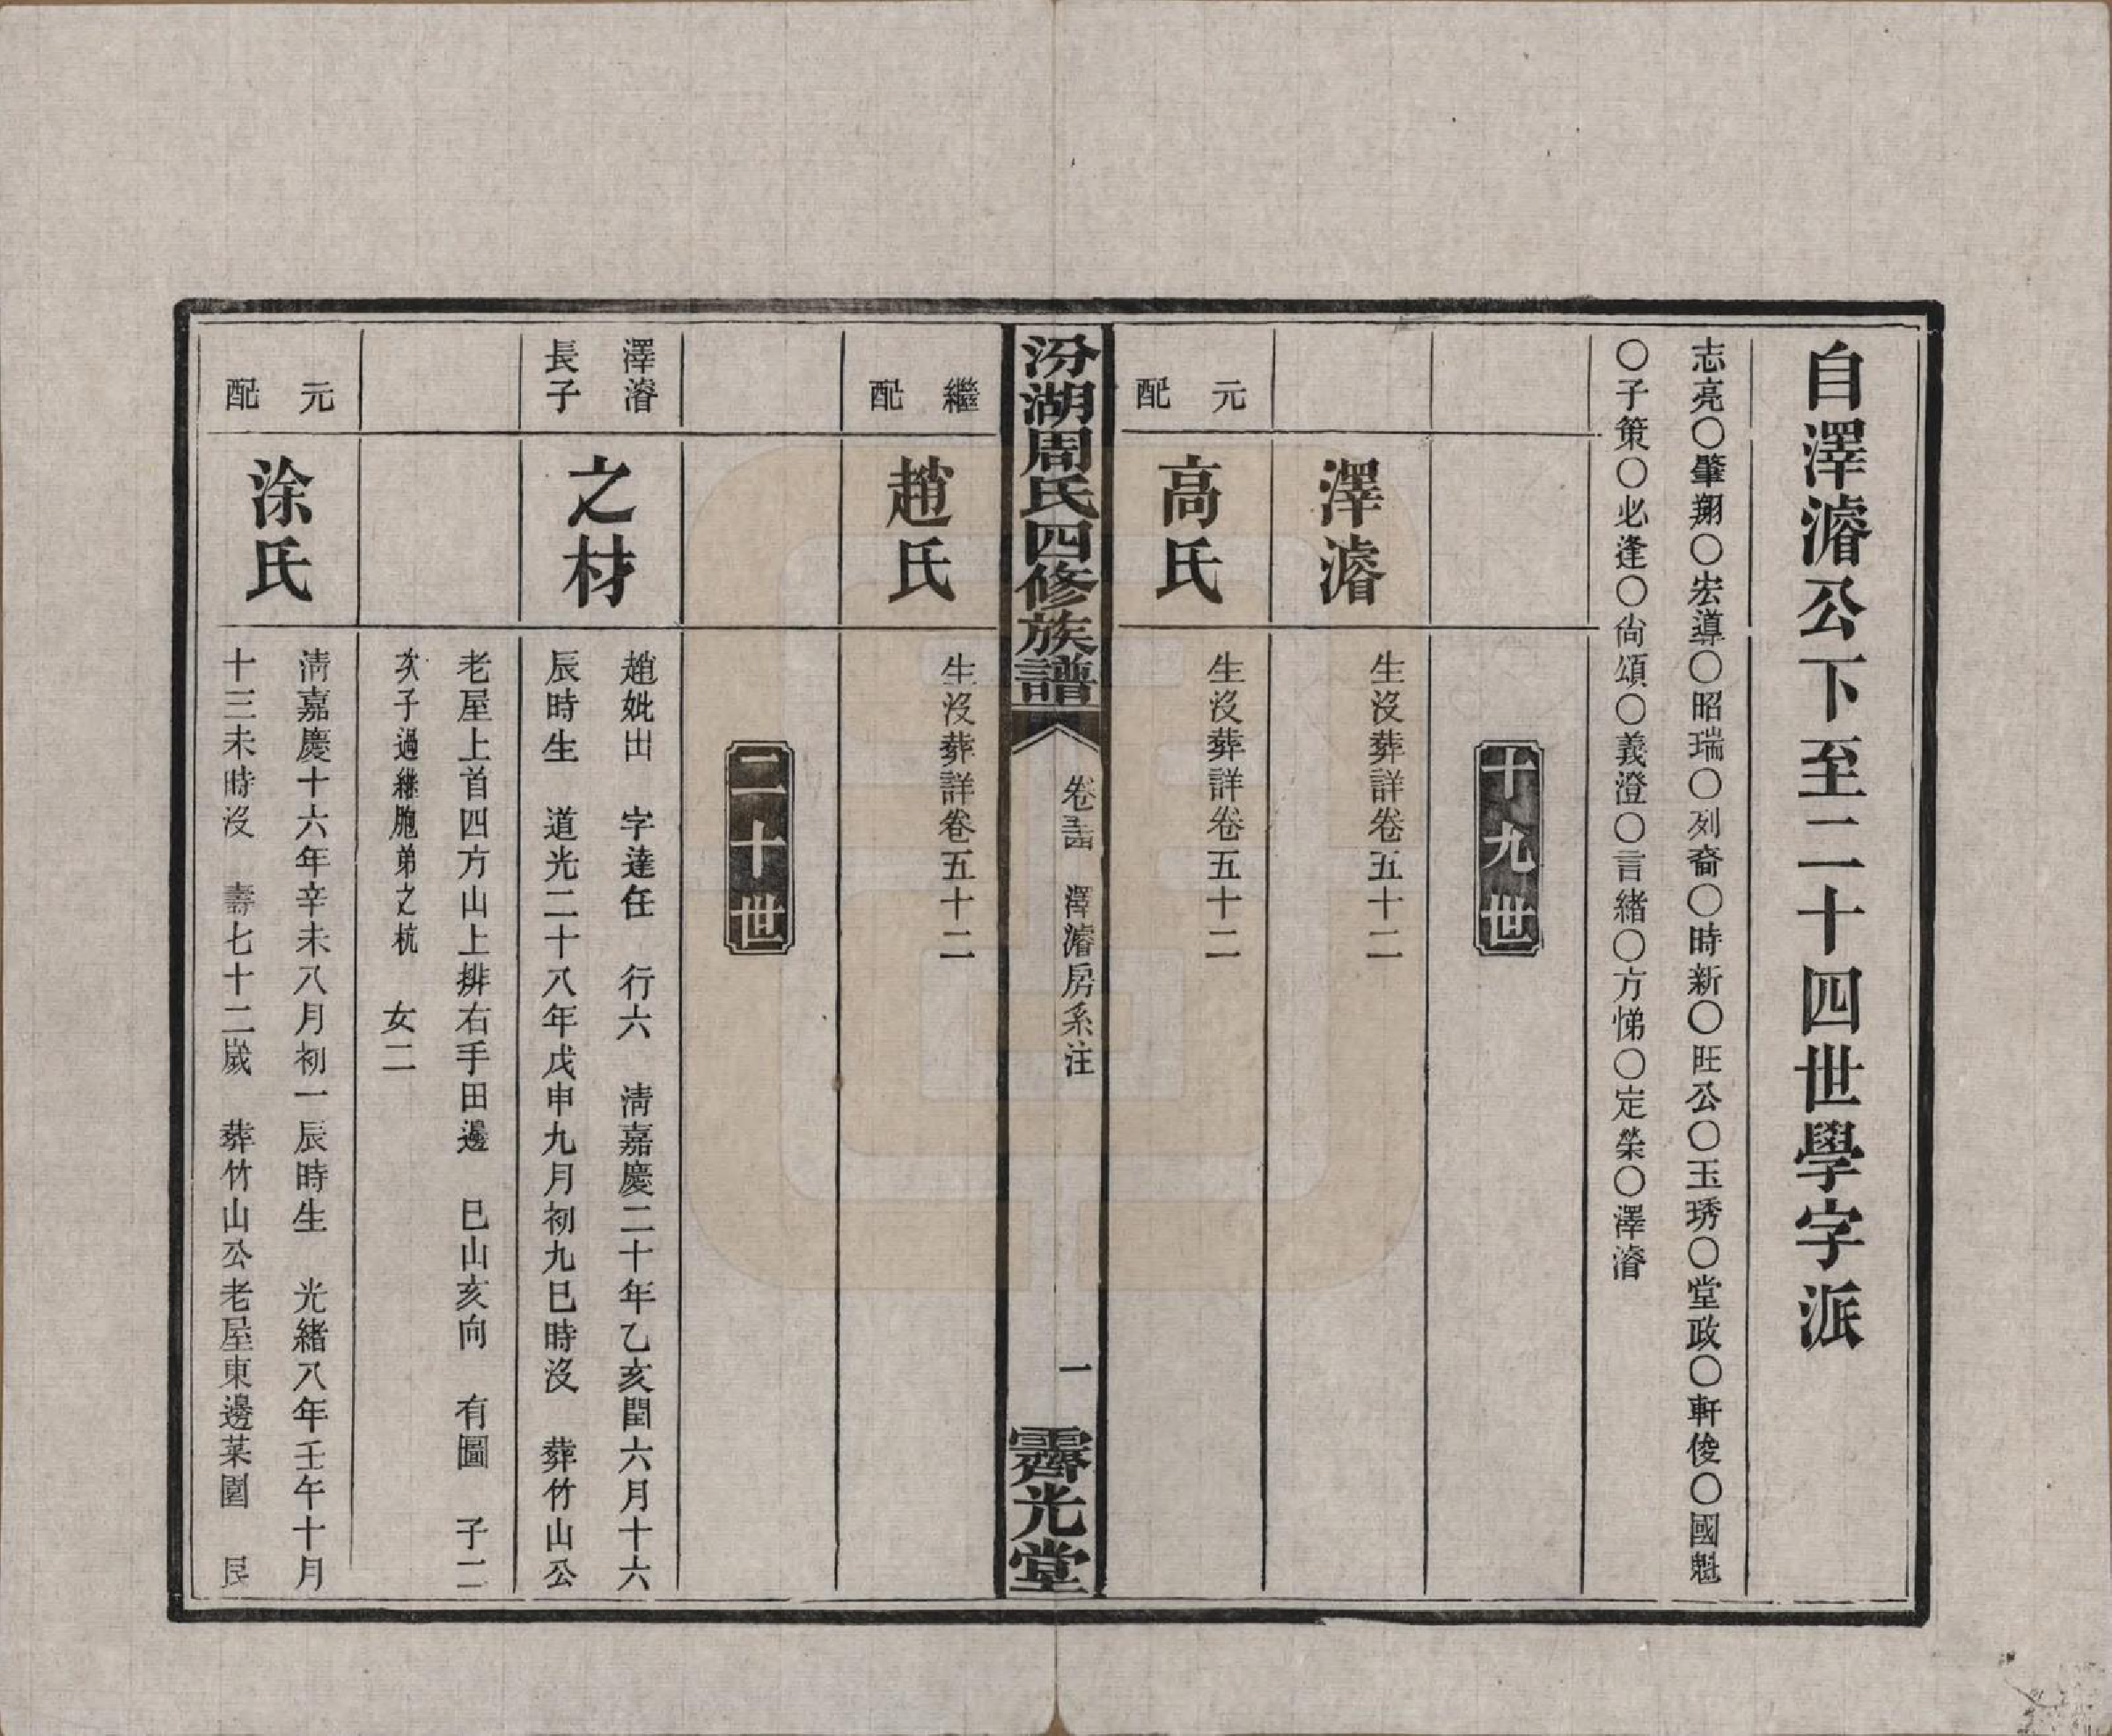 自澤濬公下至二十四世學字派
志亮〇肇翔〇宏導〇昭瑞〇列裔〇時新〇旺公〇玉琇〇堂政〇軒俊〇國魁
〇子策〇必逢〇尙頌〇義澄〇言緒〇方悌〇定榮〇澤濬
十九世
澤濬
生沒葬詳卷五十二
元配
高氏
生沒葬詳卷五十二
汾湖周氏四修族譜
澤濬房系注
一
霽光堂
繼配
趙氏
生沒葬詳卷五十二
二十世
澤濬
長子
之材
趙妣出 字達任 行六 淸嘉慶二十年乙亥閏六月十六
辰時生 道光二十八年戊申九月初九巳時沒 葬竹山公
老屋上首四方山上排右手田邊 巳山亥向 有圖 子二
次子過繼胞弟之杭 女二
元配
涂氏
淸嘉慶十六年辛未八月初一辰時生 光緒八年壬午十月
十三未時沒 壽七十二歲 葬竹山公老屋東邊菜園 艮